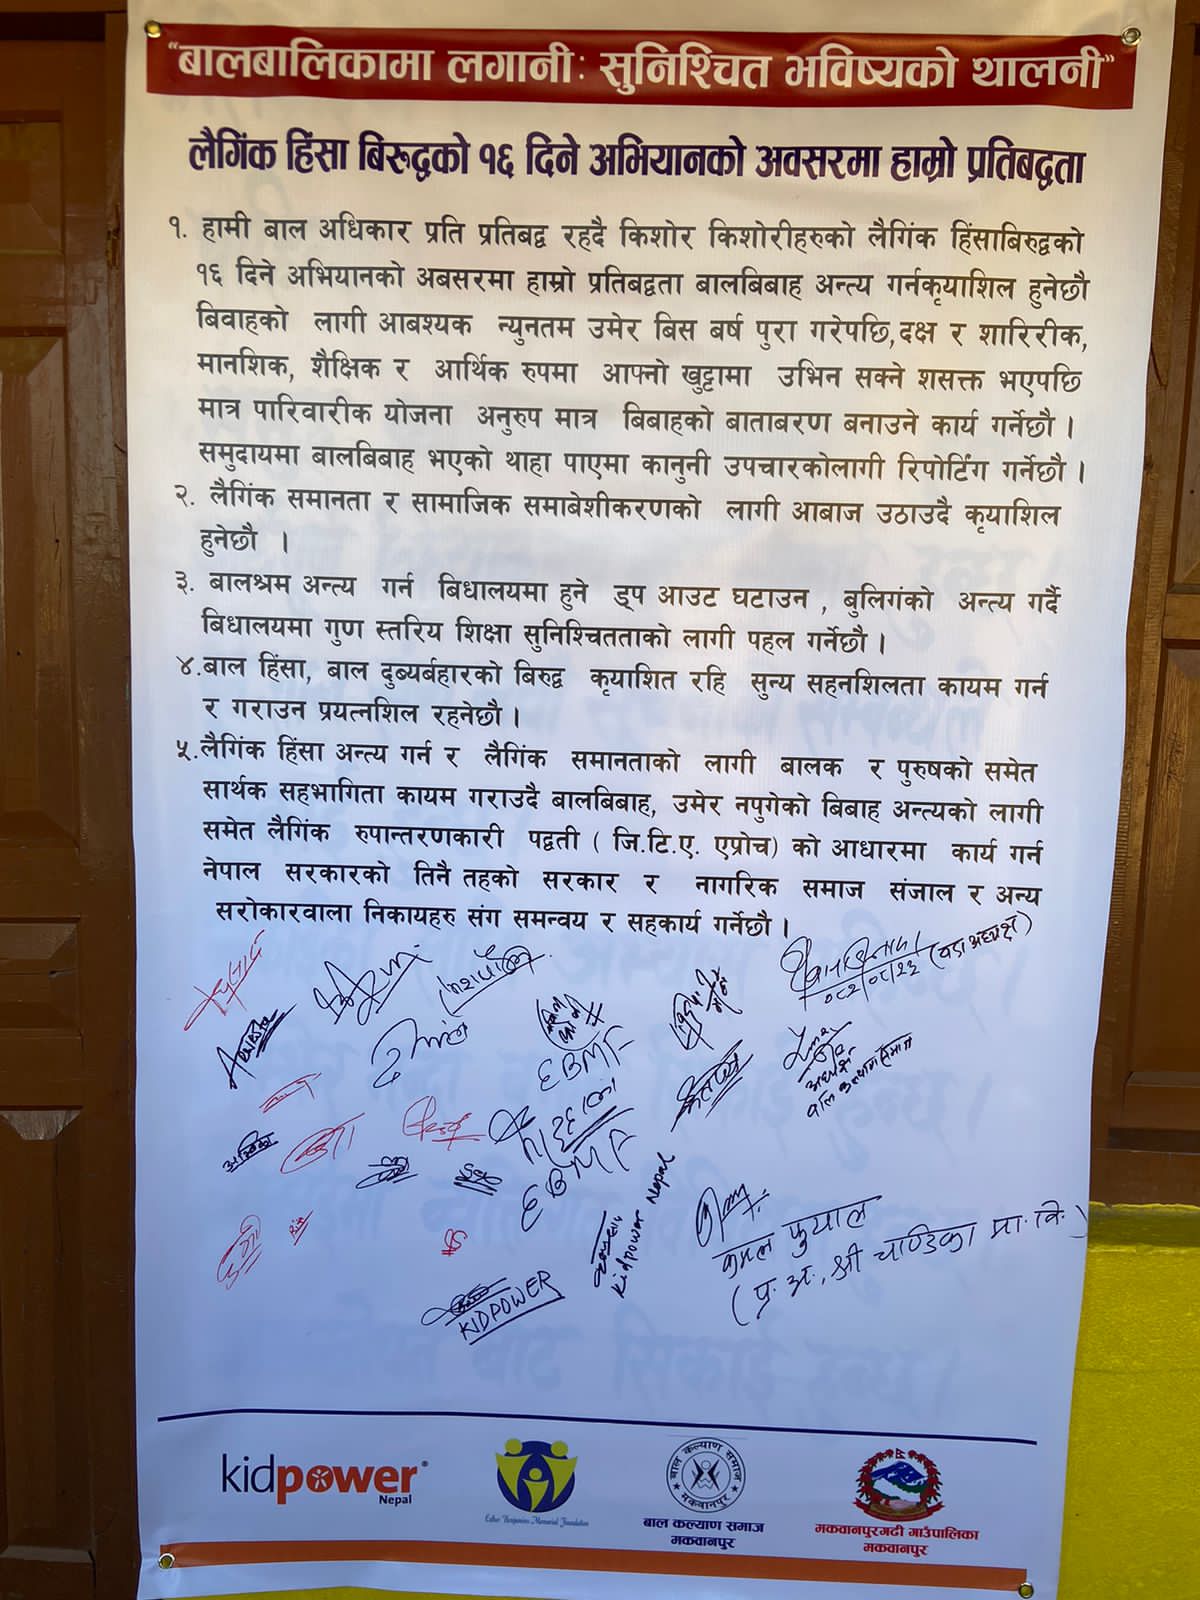 “बालबालिकामा लगानी: सुनिश्चित भविष्यको थालनी”
लैगिंक हिंसा बिरूद्धको १६ दिने अभियानको अवसरमा हाम्रो प्रतिबद्धता
१. हामी बाल अधिकार प्रति प्रतिबद्ध रहदै किशोर किशोरीहरुको लैगिंक हिंसाबिरुद्धको
१६ दिने अभियानको अबसरमा हाम्रो प्रतिबद्धता बालबिबाह अन्त्य गर्नकृयाशिल हुनेछौ
बिवाहको लागी आबश्यक न्युनतम उमेर बिस बर्ष पुरा गरेपछि, दक्ष र शारिरीक,
मानशिक, शैक्षिक र आर्थिक रुपमा आफ्नो खुट्टामा उभिन सक्ने शसक्त भएपछि
मात्र पारिवारीक योजना अनुरुप मात्र बिबाहको बाताबरण बनाउने कार्य गर्नेछौ ।
समुदायमा बालबिबाह भएको थाहा पाएमा कानुनी उपचारकोलागी रिपोर्टिंग गर्नेछौ ।
२. लैगिंक समानता र सामाजिक समाबेशीकरणको लागी आबाज उठाउदै कृयाशिल
हुनेछौ ।
३. बालश्रम अन्त्य गर्न बिधालयमा हुने ड्रप आउट घटाउन , बुलिगंको अन्त्य गर्दै
बिधालयमा गुण स्तरिय शिक्षा सुनिश्चितताको लागी पहल गर्नेछौ ।
४.बाल हिंसा, बाल दुब्यर्बहारको बिरुद्ध कृयाशित रहि सुन्य सहनशिलता कायम गर्न
र गराउन प्रयत्नशिल रहनेछौ ।
५.लैगिंक हिंसा अन्त्य गर्न र लैगिंक समानताको लागी बालक र पुरुषको समेत
सार्थक सहभागिता कायम गराउदै बालबिबाह, उमेर नपुगेको बिबाह अन्त्यको लागी
समेत लैगिंक रुपान्तरणकारी पद्धती ( जि.टि.ए. एप्रोच) को आधारमा कार्य गर्न
नेपाल सरकारको तिनै तहको सरकार र नागरिक समाज संजाल र अन्य
सरोकारवाला निकायहरु संग समन्वय र सहकार्य गर्नेछौ ।
(वडा अध्यक्ष)
EBMF
अध्यक्ष
बाल कल्याण समाज
अम्बिका
EBMF
Kidpower Nepal
KIDPOWER
कमल फुयाल
(प्र. अ., श्री चाण्डिका प्रा. वि.)
kidpower®
Nepal
Esther Benjamins Memorial Foundation
बाल कल्याण समाज
मकवानपुर
बाल कल्याण समाज
मकवानपुर
मकवानपुरगढी गाउँपालिका
मकवानपुर